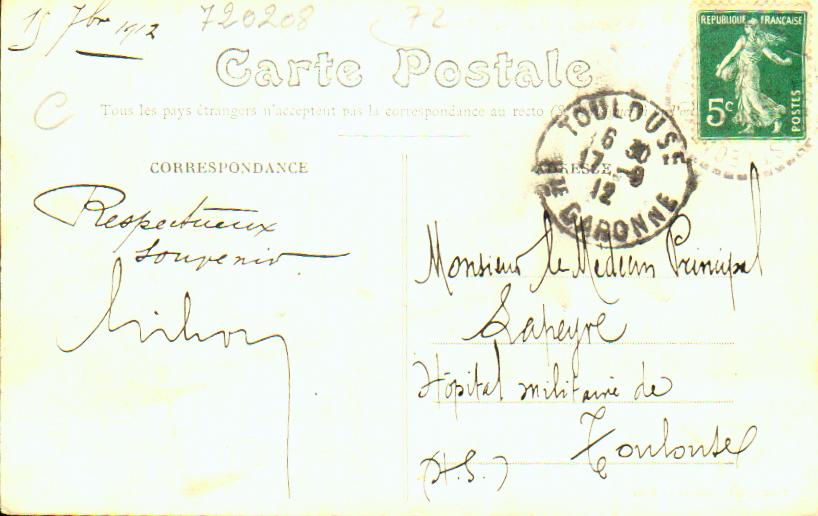 15 7bre 1912
720208
72
C
Carte Postale
Tous les pays étrangers n'acceptent pas la correspondance au recto
REPUBLIQUE FRANÇAISE
5c
POSTES
TOULOUSE
16 30
17 -9
12
GARONNE
CORRESPONDANCE
ADRESSE
Respectueux
souvenir
Monsieur le Médecin Principal
Lapeyre
Hôpital militaire de
Toulouse
(H.G.)